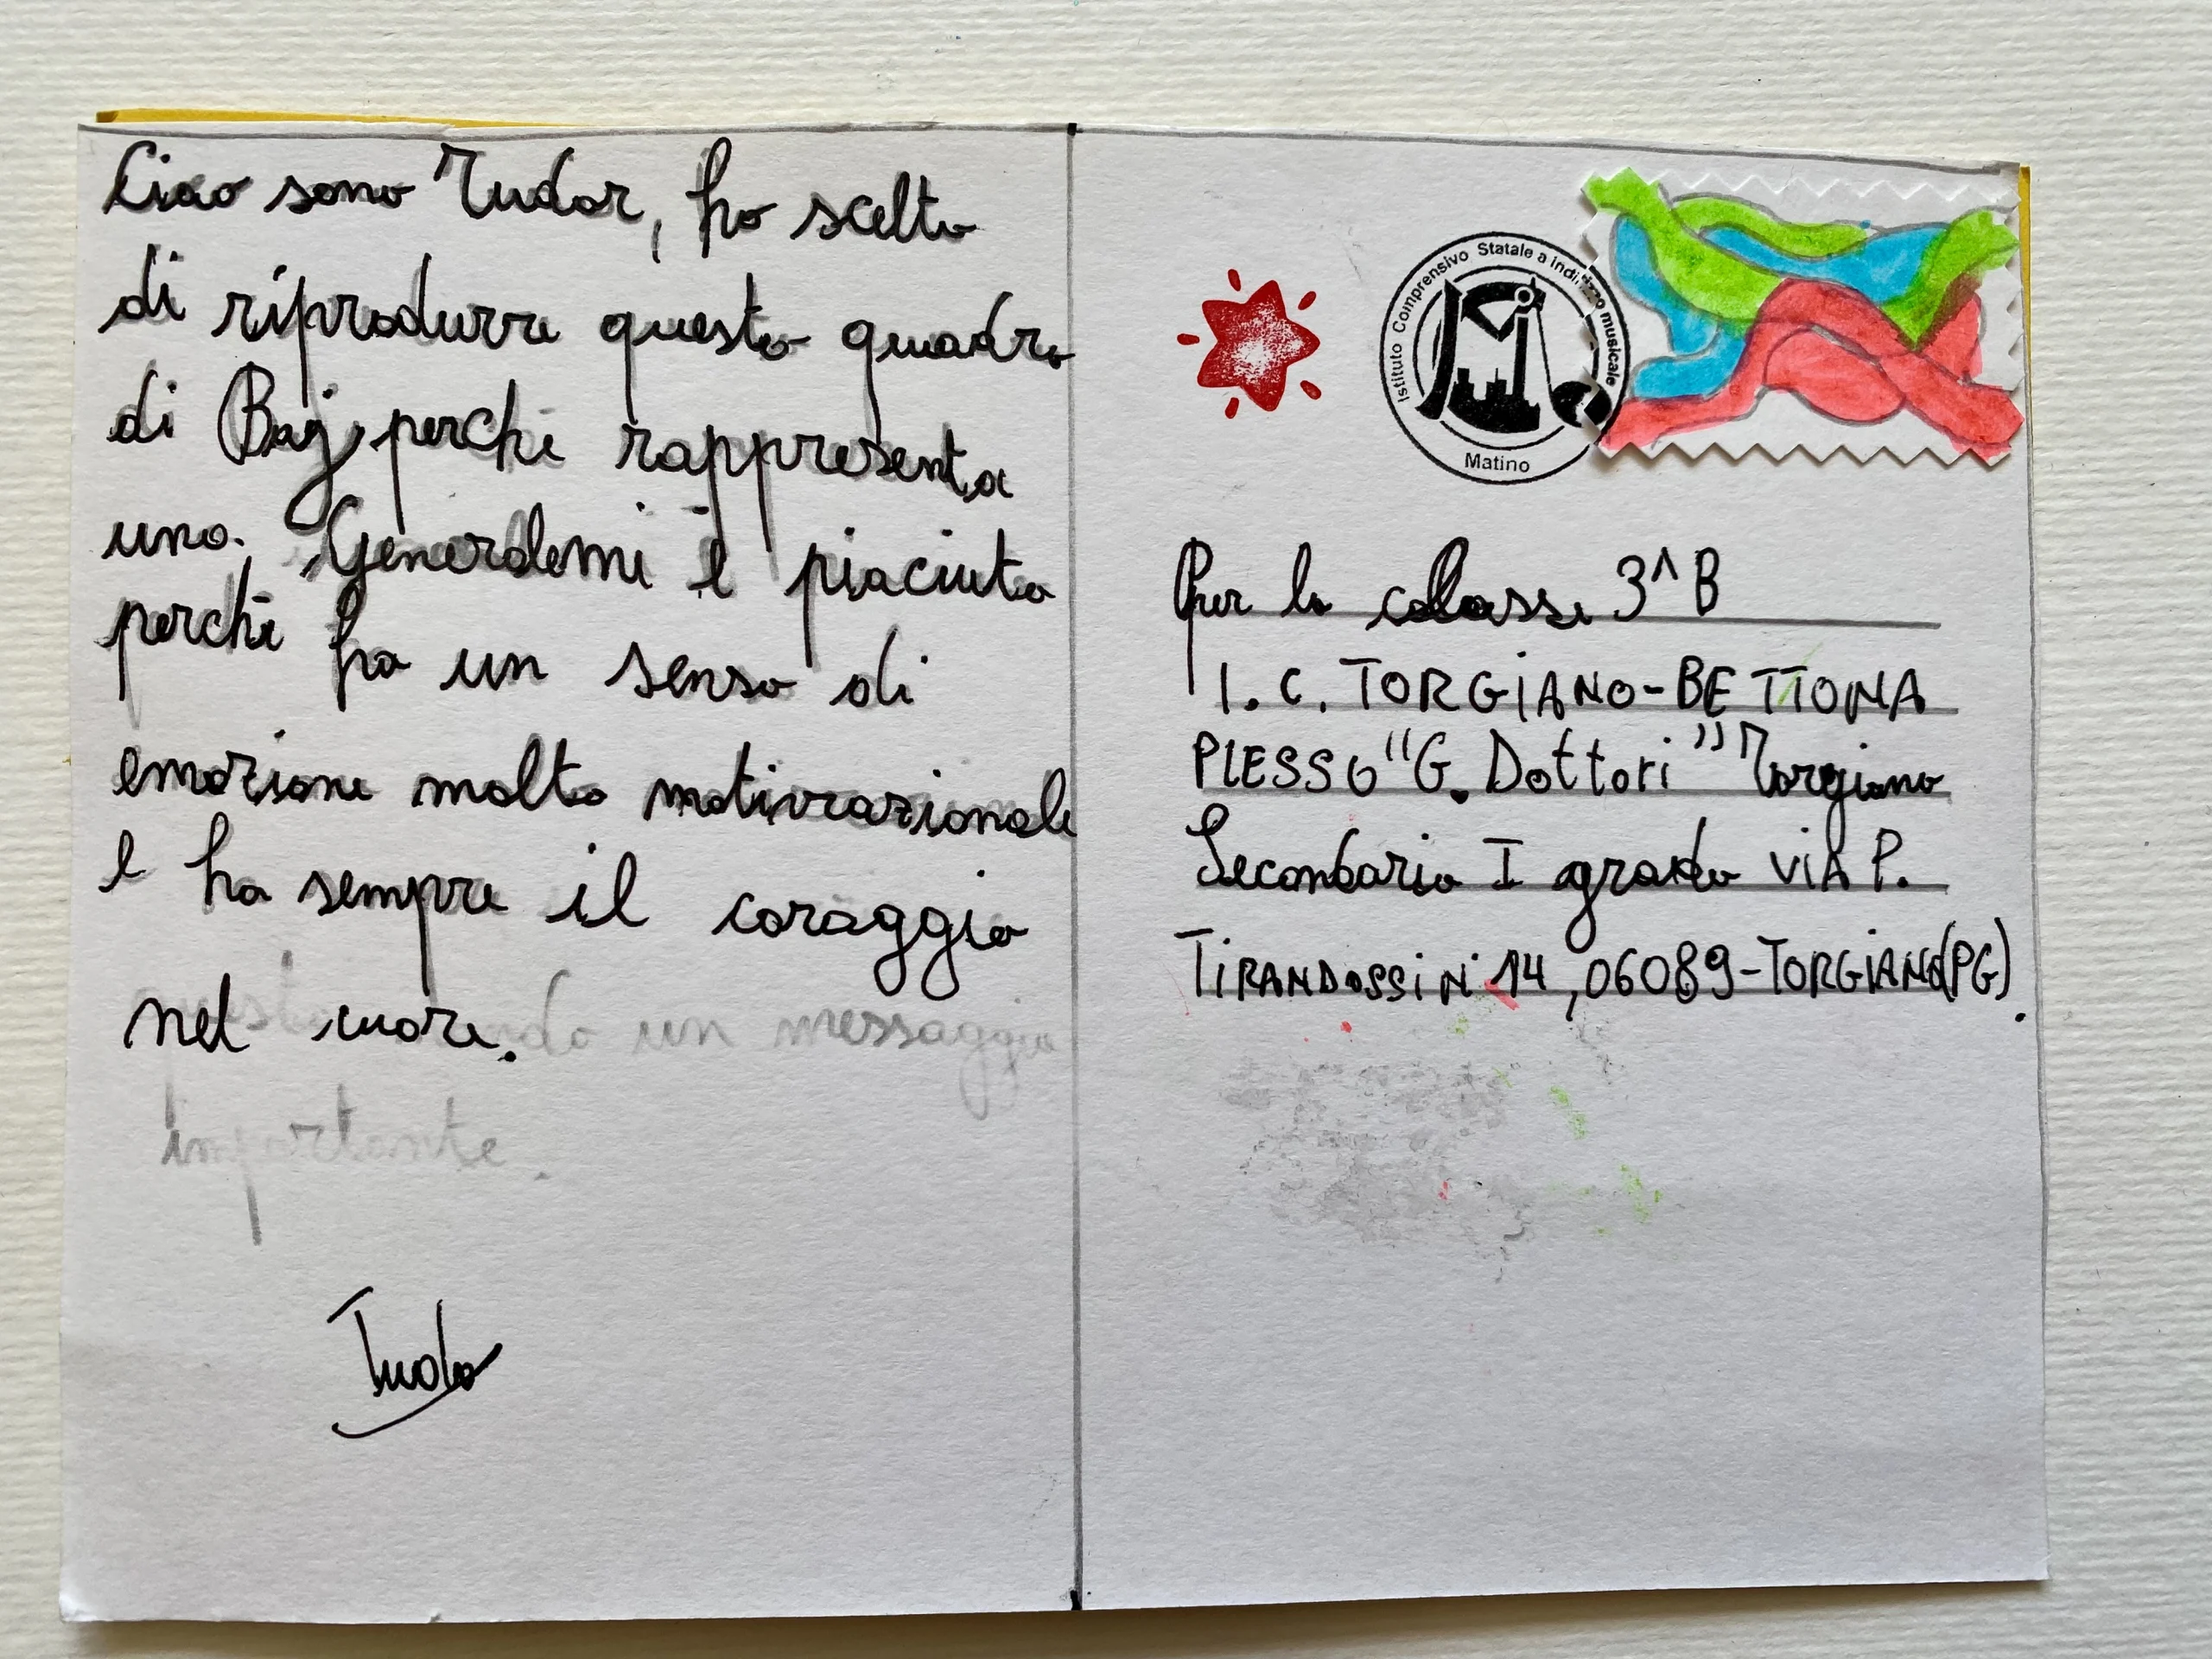 Ciao sono Tudor, ho scelto
di riprodurre questo quadro
di Baj, perchè rappresenta
uno. Generale mi è piaciuto
perchè ha un senso di
emozione molto motivazionale
e ha sempre il coraggio
nel cuore.
un messaggio
importante.
Istituto Comprensivo Statale a indirizzo musicale
Matino
Per la classe 3^B
I.C. TORGIANO-BETTONA
PLESSO "G. Dottori" Torgiano
Secondaria I grado VIA P.
TIRANDOSSI N° 14, 06089-TORGIANO(PG).